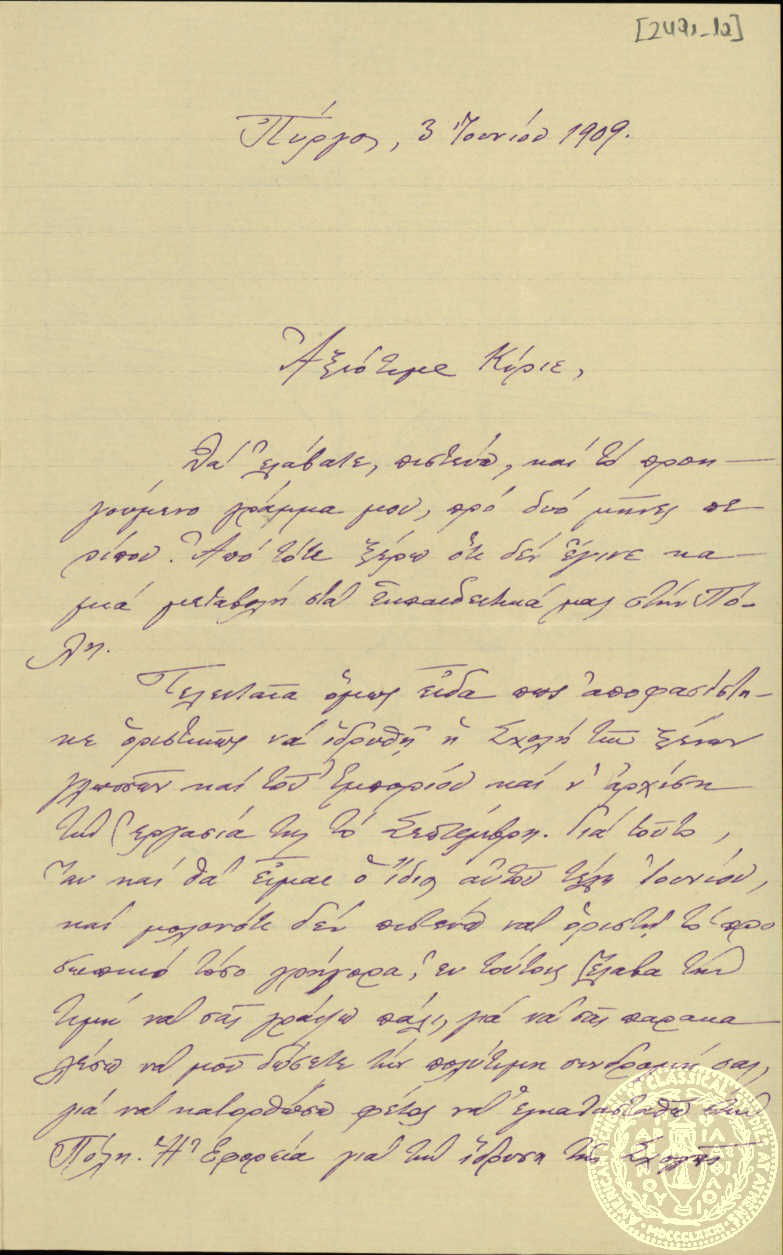 [2491-12]
Πύργος, 3 Ἰουνίου 1909.
Ἀξιότιμε Κύριε,
Θὰ ἐλάβατε, πιστεύω, καὶ τὸ προη-
γούμενο γράμμα μου, πρὸ δυὸ μῆνες πε
ρίπου. Ἀπὸ τότε ξέρω ὅτι δὲν ἔγινε κα-
μιὰ μεταβολὴ στὰ ἐκπαιδευτικά μας στὴν Πό-
λη.
Τελευταῖα ὅμως εἶδα πῶς ἀποφασίστη-
κε ὁριστικῶς νὰ ἱδρυθῇ ἡ Σχολὴ τῶν ξένων
γλωσσῶν καὶ τοῦ Ἐμπορίου καὶ ν' ἀρχίση
τὴν ἐργασία της τὸ Σεπτέμβρη. Γιὰ τοῦτο,
ἂν καὶ θὰ εἶμαι ὁ ἴδιος αὐτοῦ τέλη Ἰουνίου,
καὶ μολονότι δὲν πιστεύω νὰ ὁριστῇ τὸ προ
σωπικὸ τόσο γρήγορα, ἐν τούτοις ἔλαβα τὴν
τιμὴ νὰ σᾶς γράψω πάλι, γιὰ νὰ σᾶς παρακα
λέσω νὰ μοῦ δώσετε τὴν πολύτιμη συνδρομή σας,
γιὰ νὰ κατορθώσω φέτος νὰ ἐγκατασταθῶ στὴν
Πόλη. Ἡ Ἐφορεία γιὰ τὴν ἵδρυση τῆς Σχολῆς
AMERICAN SCHOOL OF CLASSICAL STUDIES AT ATHENS
MDCCCLXXXI